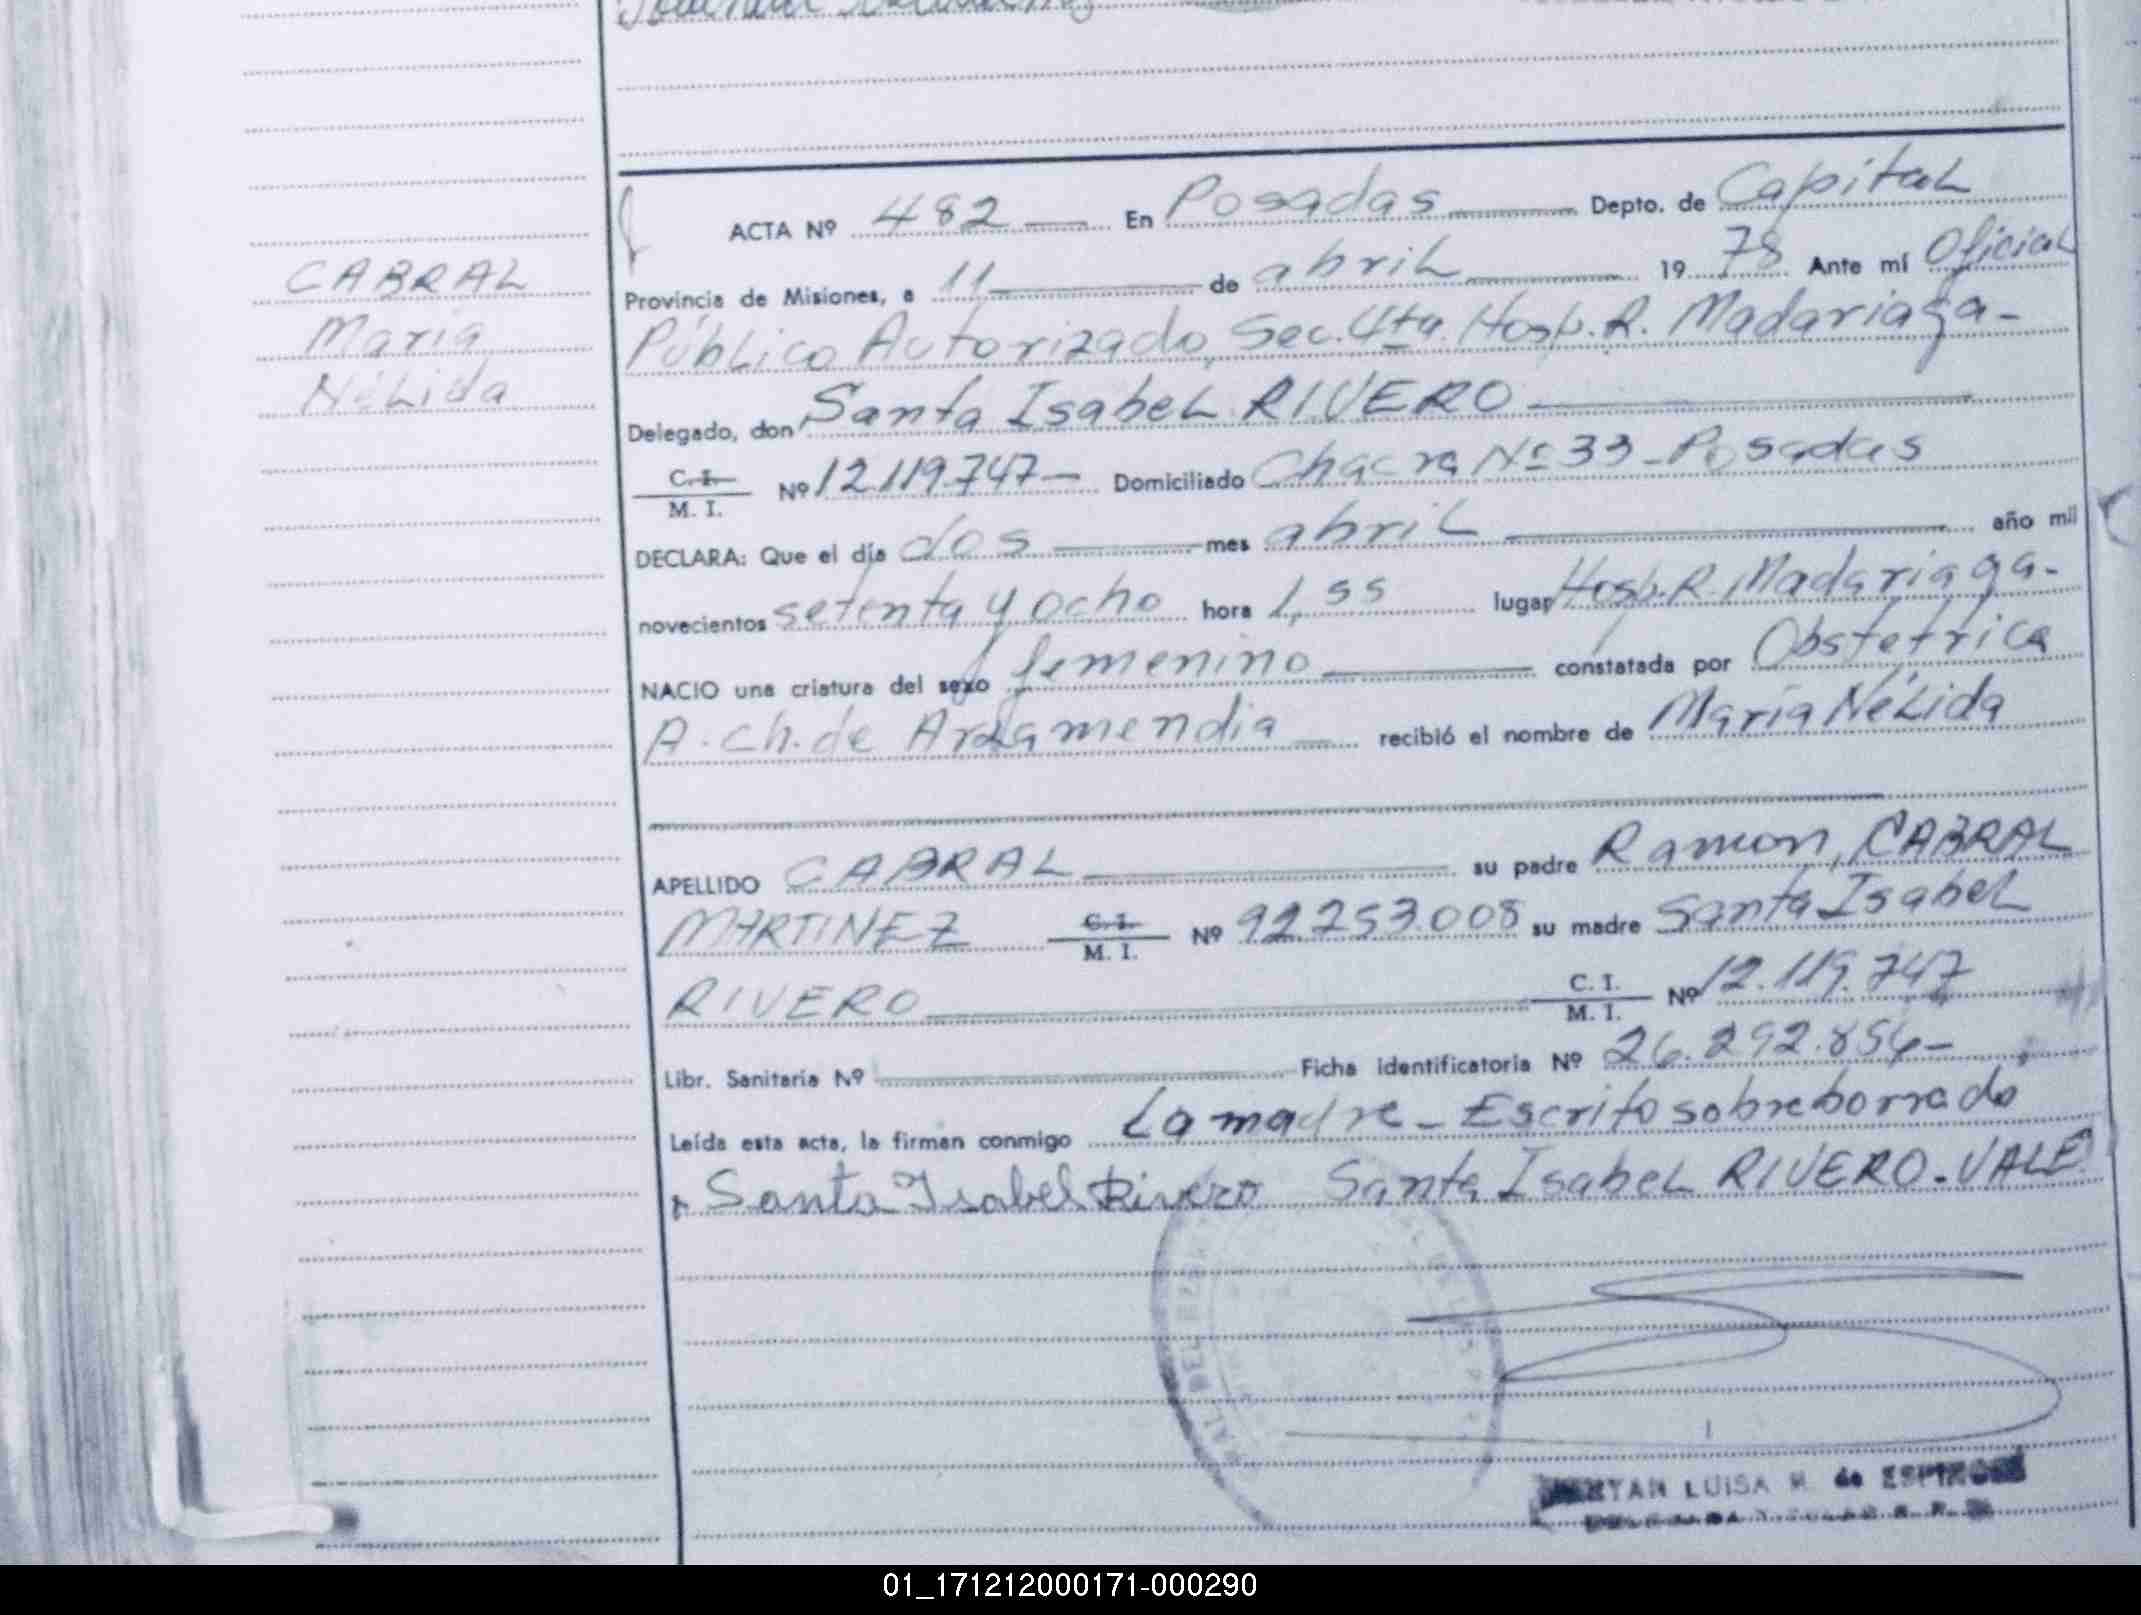 ACTA Nº 482 En Posadas Depto. de Capital
Provincia de Misiones, a 11 de abril 1978 Ante mí Oficial
Público Autorizado, Sec. 4ta. Hosp. R. Madariaga-
Delegado, don Santa Isabel RIVERO
C. I. / M. I. Nº 12.119.747- Domiciliado Chacra Nº 33-Posadas
DECLARA: Que el día dos mes abril año mil
novecientos setenta y ocho hora 1,55 lugar Hosp. R. Madariaga-
NACIO una criatura del sexo femenino constatada por Obstétrica
A. Ch. de Arzamendia recibió el nombre de María Nélida
APELLIDO CABRAL su padre Ramon, CABRAL
MARTINEZ C. I. / M. I. Nº 92.253.008 su madre Santa Isabel
RIVERO C. I. / M. I. Nº 12.119.747
Libr. Sanitaria Nº Ficha identificatoria Nº 26.292.854-
Leída esta acta, la firman conmigo La madre - Escrito sobreborrado
Santa Isabel Rivero Santa Isabel RIVERO-VALE
LUISA de
CABRAL
María
Nélida
01_171212000171-000290